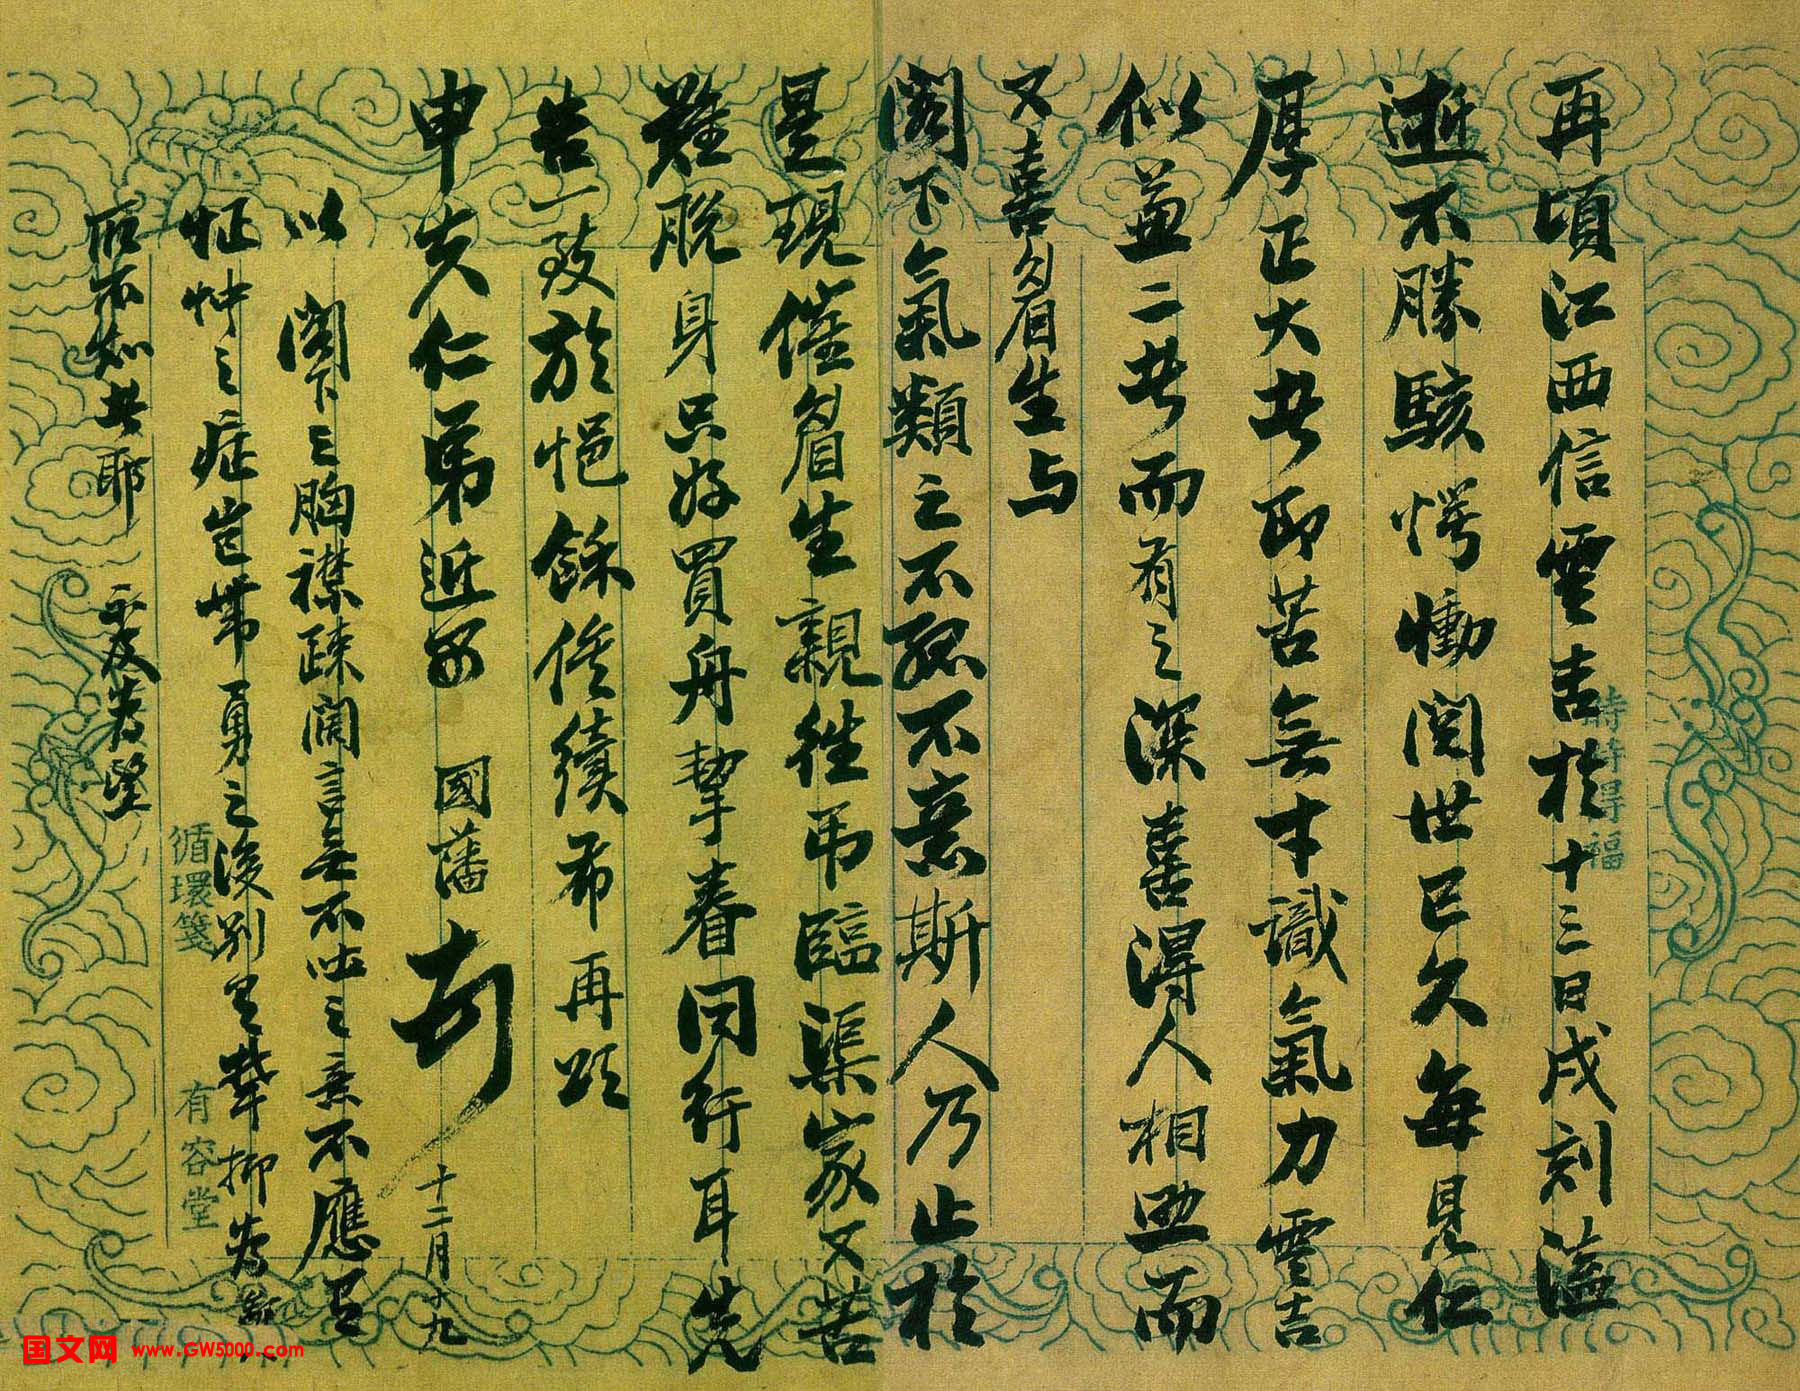 再頃江西信雲吉於十三日戌刻溘
逝不勝駭愕慟閱世已久每見仁
厚正大者即苦無才識氣力雲吉
似兼二者而有之深喜得人相助而
又喜眉生与
閣下氣類之不孤不意斯人乃止於
是現催眉生親往弔臨渠家又苦
難脫身只好買舟挈眷同行耳先
告一致於悒餘俟續布再頌
申夫仁弟近安 國藩 頓
十二月十九
以閣下之胸襟疎闊言無不吐之意不應呈
怔忡之症豈帶勇之後別有鬱抑為
所不如者耶 再及為望
時時得福
循環箋
有容堂
国文网 www.GW5000.com